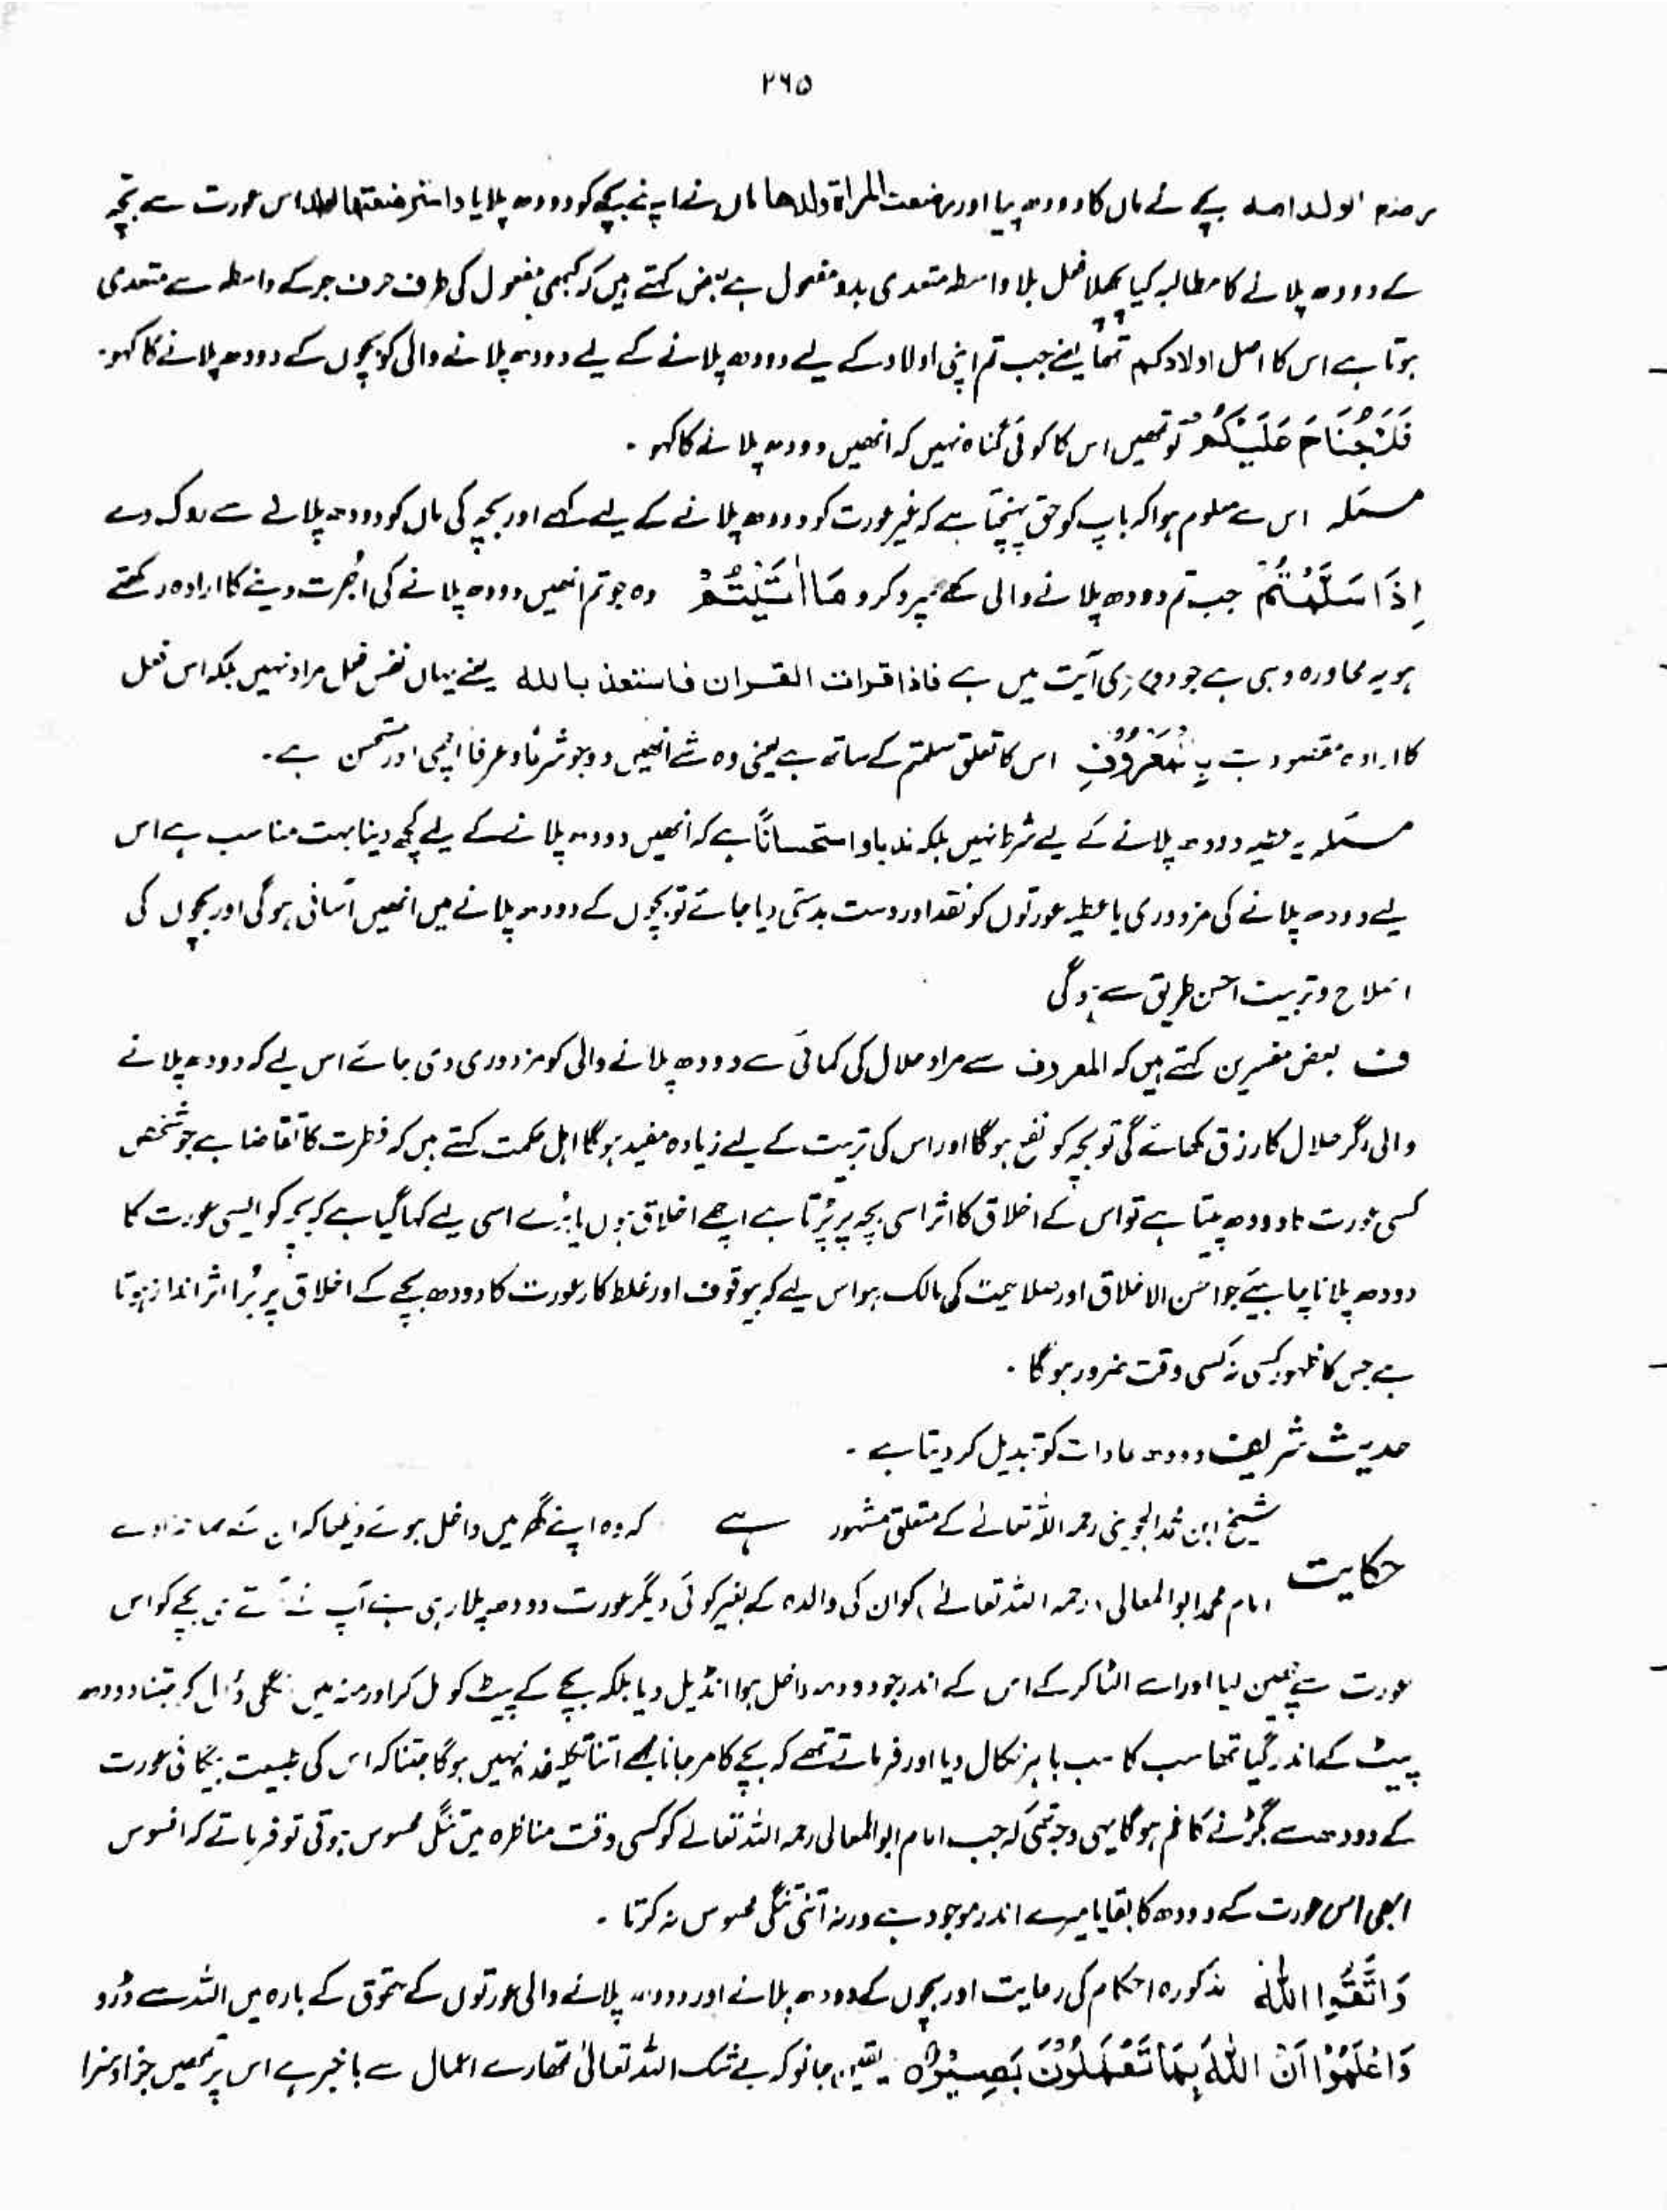 ۲۶۵
رضع الولد امہ بچے نے ماں کا دودھ پیا اور رضعت المراۃ ولدھا ماں نے اپنے بچے کو دودھ پلایا واسترضعتھا الولد اس عورت سے بچّہ
کے دودھ پلانے کا مطالبہ کیا پہلا فعل بلا واسطہ متعدی بدو مفعول ہے بعض کہتے ہیں کہ کبھی مفعول کی طرف حرف جر کے واسطہ سے متعدی
ہوتا ہے اس کا اصل اولادکم تھا یعنے جب تم اپنی اولاد کے لیے دودھ پلانے کے لیے دودھ پلانے والی کو بچوں کے دودھ پلانے کا کہو۔
فَلَا جُنَاحَ عَلَيْكُمْ تو تمھیں اس کا کوئی گناہ نہیں کہ انھیں دودھ پلانے کا کہو ۔
مسئلہ اس سے معلوم ہوا کہ باپ کو حق پہنچتا ہے کہ غیر عورت کو دودھ پلانے کے لیے کہے اور بچہ کی ماں کو دودھ پلانے سے روک دے
اِذَا سَلَّمْتُمْ جب تم دودھ پلانے والی کے سپرد کرو مَا اٰتَيْتُمْ وہ جو تم انھیں دودھ پلانے کی اُجرت دینے کا ارادہ رکھتے
ہو یہ محاورہ وہی ہے جو دوسری آیت میں ہے فاذا قرات القران فاستعذ باللہ یعنے یہاں نفس فعل مراد نہیں بلکہ اس فعل
کا ارادہ مقصود ہے بِالْمَعْرُوْفِ اس کا تعلق سلمتم کے ساتھ ہے یعنی وہ شے انھیں دو جو شرعًا و عرفًا اچھی اور مستحسن ہے۔
مسئلہ یہ عقید دودھ پلانے کے لیے شرط نہیں بلکہ ندبا و استحسانًا ہے کہ انھیں دودھ پلانے کے لیے کچھ دینا بہت مناسب ہے اس
لیے دودھ پلانے کی مزدوری یا عطیہ عورتوں کو نقد اور دست بدستی دیا جائے تو بچوں کے دودھ پلانے میں انھیں آسانی ہوگی اور بچوں کی
اصلاح و تربیت احسن طریق سے ہوگی
ف بعض مفسرین کہتے ہیں کہ المعروف سے مراد حلال کی کمائی سے دودھ پلانے والی کو مزدوری دی جائے اس لیے کہ دودھ پلانے
والی اگر حلال کا رزق کھائے گی تو بچہ کو نفع ہوگا اور اس کی تربیت کے لیے زیادہ مفید ہوگا اہل حکمت کہتے ہیں کہ فطرت کا تقاضا ہے جو شخص
کسی عورت کا دودھ پیتا ہے تو اس کے اخلاق کا اثر اسی بچہ پر پڑتا ہے اچھے اخلاق ہوں یا بُرے اسی لیے کہا گیا ہے کہ بچہ کو ایسی عورت کا
دودھ پلانا چاہیئے جو احسن الاخلاق اور صلاحیت کی مالک ہو اس لیے کہ بیوقوف اور غلط کار عورت کا دودھ بچے کے اخلاق پر بُرا اثر انداز ہوتا
ہے جس کا ظہور کسی نہ کسی وقت ضرور ہوگا ۔
حدیث شریف دودھ عادات کو تبدیل کر دیتا ہے ۔
حکایت شیخ ابن محمد الجوینی رحمہ اللہ تعالےٰ کے متعلق مشہور ہے کہ وہ اپنے گھر میں داخل ہوئے دیکھا کہ ان کے صاحبزادے
امام محمد ابوالمعالی (رحمہ اللہ تعالےٰ) کو ان کی والدہ کے بغیر کوئی دیگر عورت دودھ پلا رہی ہے آپ نے آتے ہی بچے کو اس
عورت سے چھین لیا اور اسے الٹا کر کے اس کے اندر جو دودھ داخل ہوا انڈیل دیا بلکہ بچے کے پیٹ کو مل کر اور منہ میں انگلی ڈال کر جتنا دودھ
پیٹ کے اندر گیا تھا سب کا سب باہر نکال دیا اور فرماتے تھے کہ بچے کا مر جانا مجھے اتنا تکلیف دہ نہیں ہوگا جتنا کہ اس کی طبیعت بیگانی عورت
کے دودھ سے بگڑنے کا غم ہوگا یہی وجہ تھی کہ جب امام ابوالمعالی رحمہ اللہ تعالےٰ کو کسی وقت مناظرہ میں تنگی محسوس ہوتی تو فرماتے کہ افسوس
ابھی اس عورت کے دودھ کا بقایا میرے اندر موجود ہے ورنہ اتنی تنگی محسوس نہ کرتا ۔
وَاتَّقُوا اللّٰهَ مذکورہ احکام کی رعایت اور بچوں کے دودھ پلانے اور دودھ پلانے والی عورتوں کے حقوق کے بارہ میں اللہ سے ڈرو
وَاعْلَمُوْا اَنَّ اللّٰهَ بِمَا تَعْمَلُوْنَ بَصِيْرٌ یقین جانو کہ بے شک اللہ تعالیٰ تمھارے اعمال سے باخبر ہے اس پر تمھیں جزا و سزا